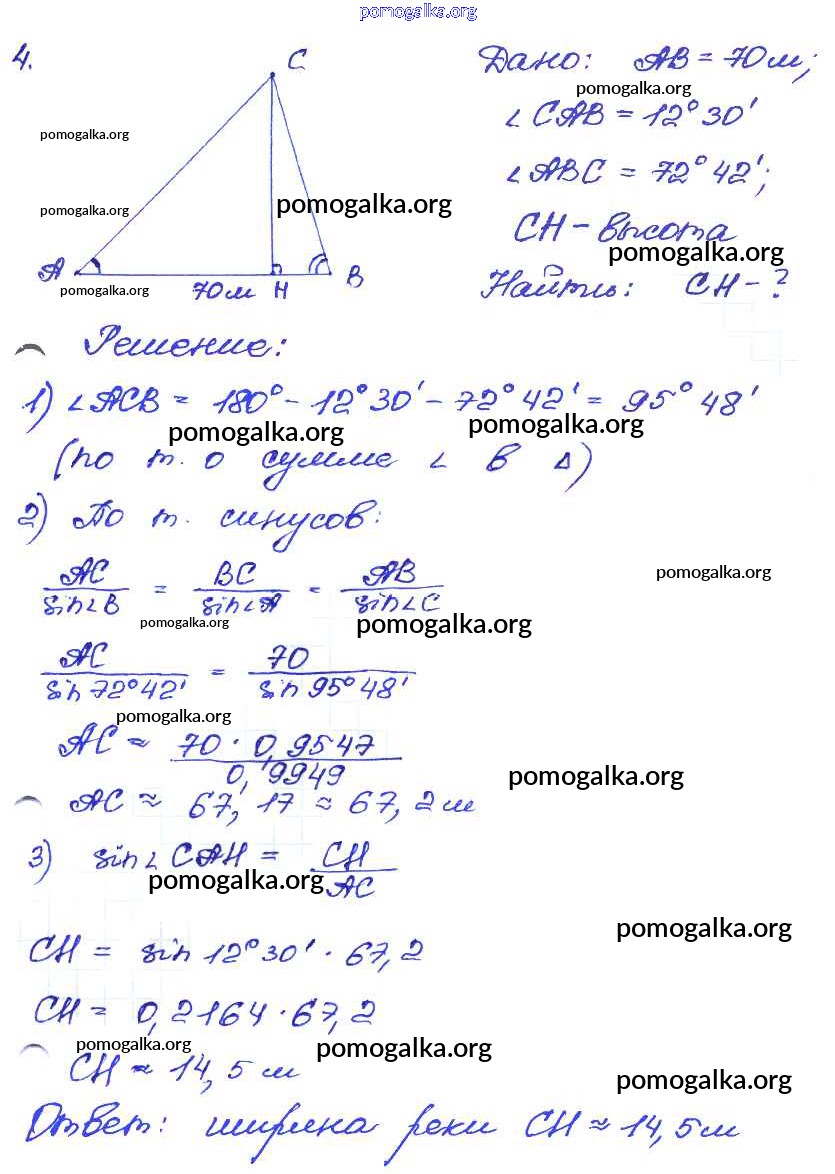 pomogalka.org
4.
C
Дано: AB = 70 м;
pomogalka.org
pomogalka.org
∠CAB = 12°30'
∠ABC = 72°42';
pomogalka.org
pomogalka.org
CH – высота
pomogalka.org
A
B
pomogalka.org
70 м
H
Найти: CH – ?
Решение:
1) ∠ACB = 180° – 12°30' – 72°42' = 95°48'
pomogalka.org
pomogalka.org
(по т. о сумме ∠ в Δ)
2) По т. синусов:
AC/sin∠B = BC/sin∠A = AB/sin∠C
pomogalka.org
pomogalka.org
pomogalka.org
AC/sin 72°42' = 70/sin 95°48'
pomogalka.org
AC ≈ 70 · 0,9547/0,9949
pomogalka.org
AC ≈ 67,17 ≈ 67,2 м
3) sin∠CAH = CH/AC
pomogalka.org
pomogalka.org
CH = sin 12°30' · 67,2
CH = 0,2164 · 67,2
pomogalka.org
pomogalka.org
CH ≈ 14,5 м
pomogalka.org
Ответ: ширина реки CH ≈ 14,5 м